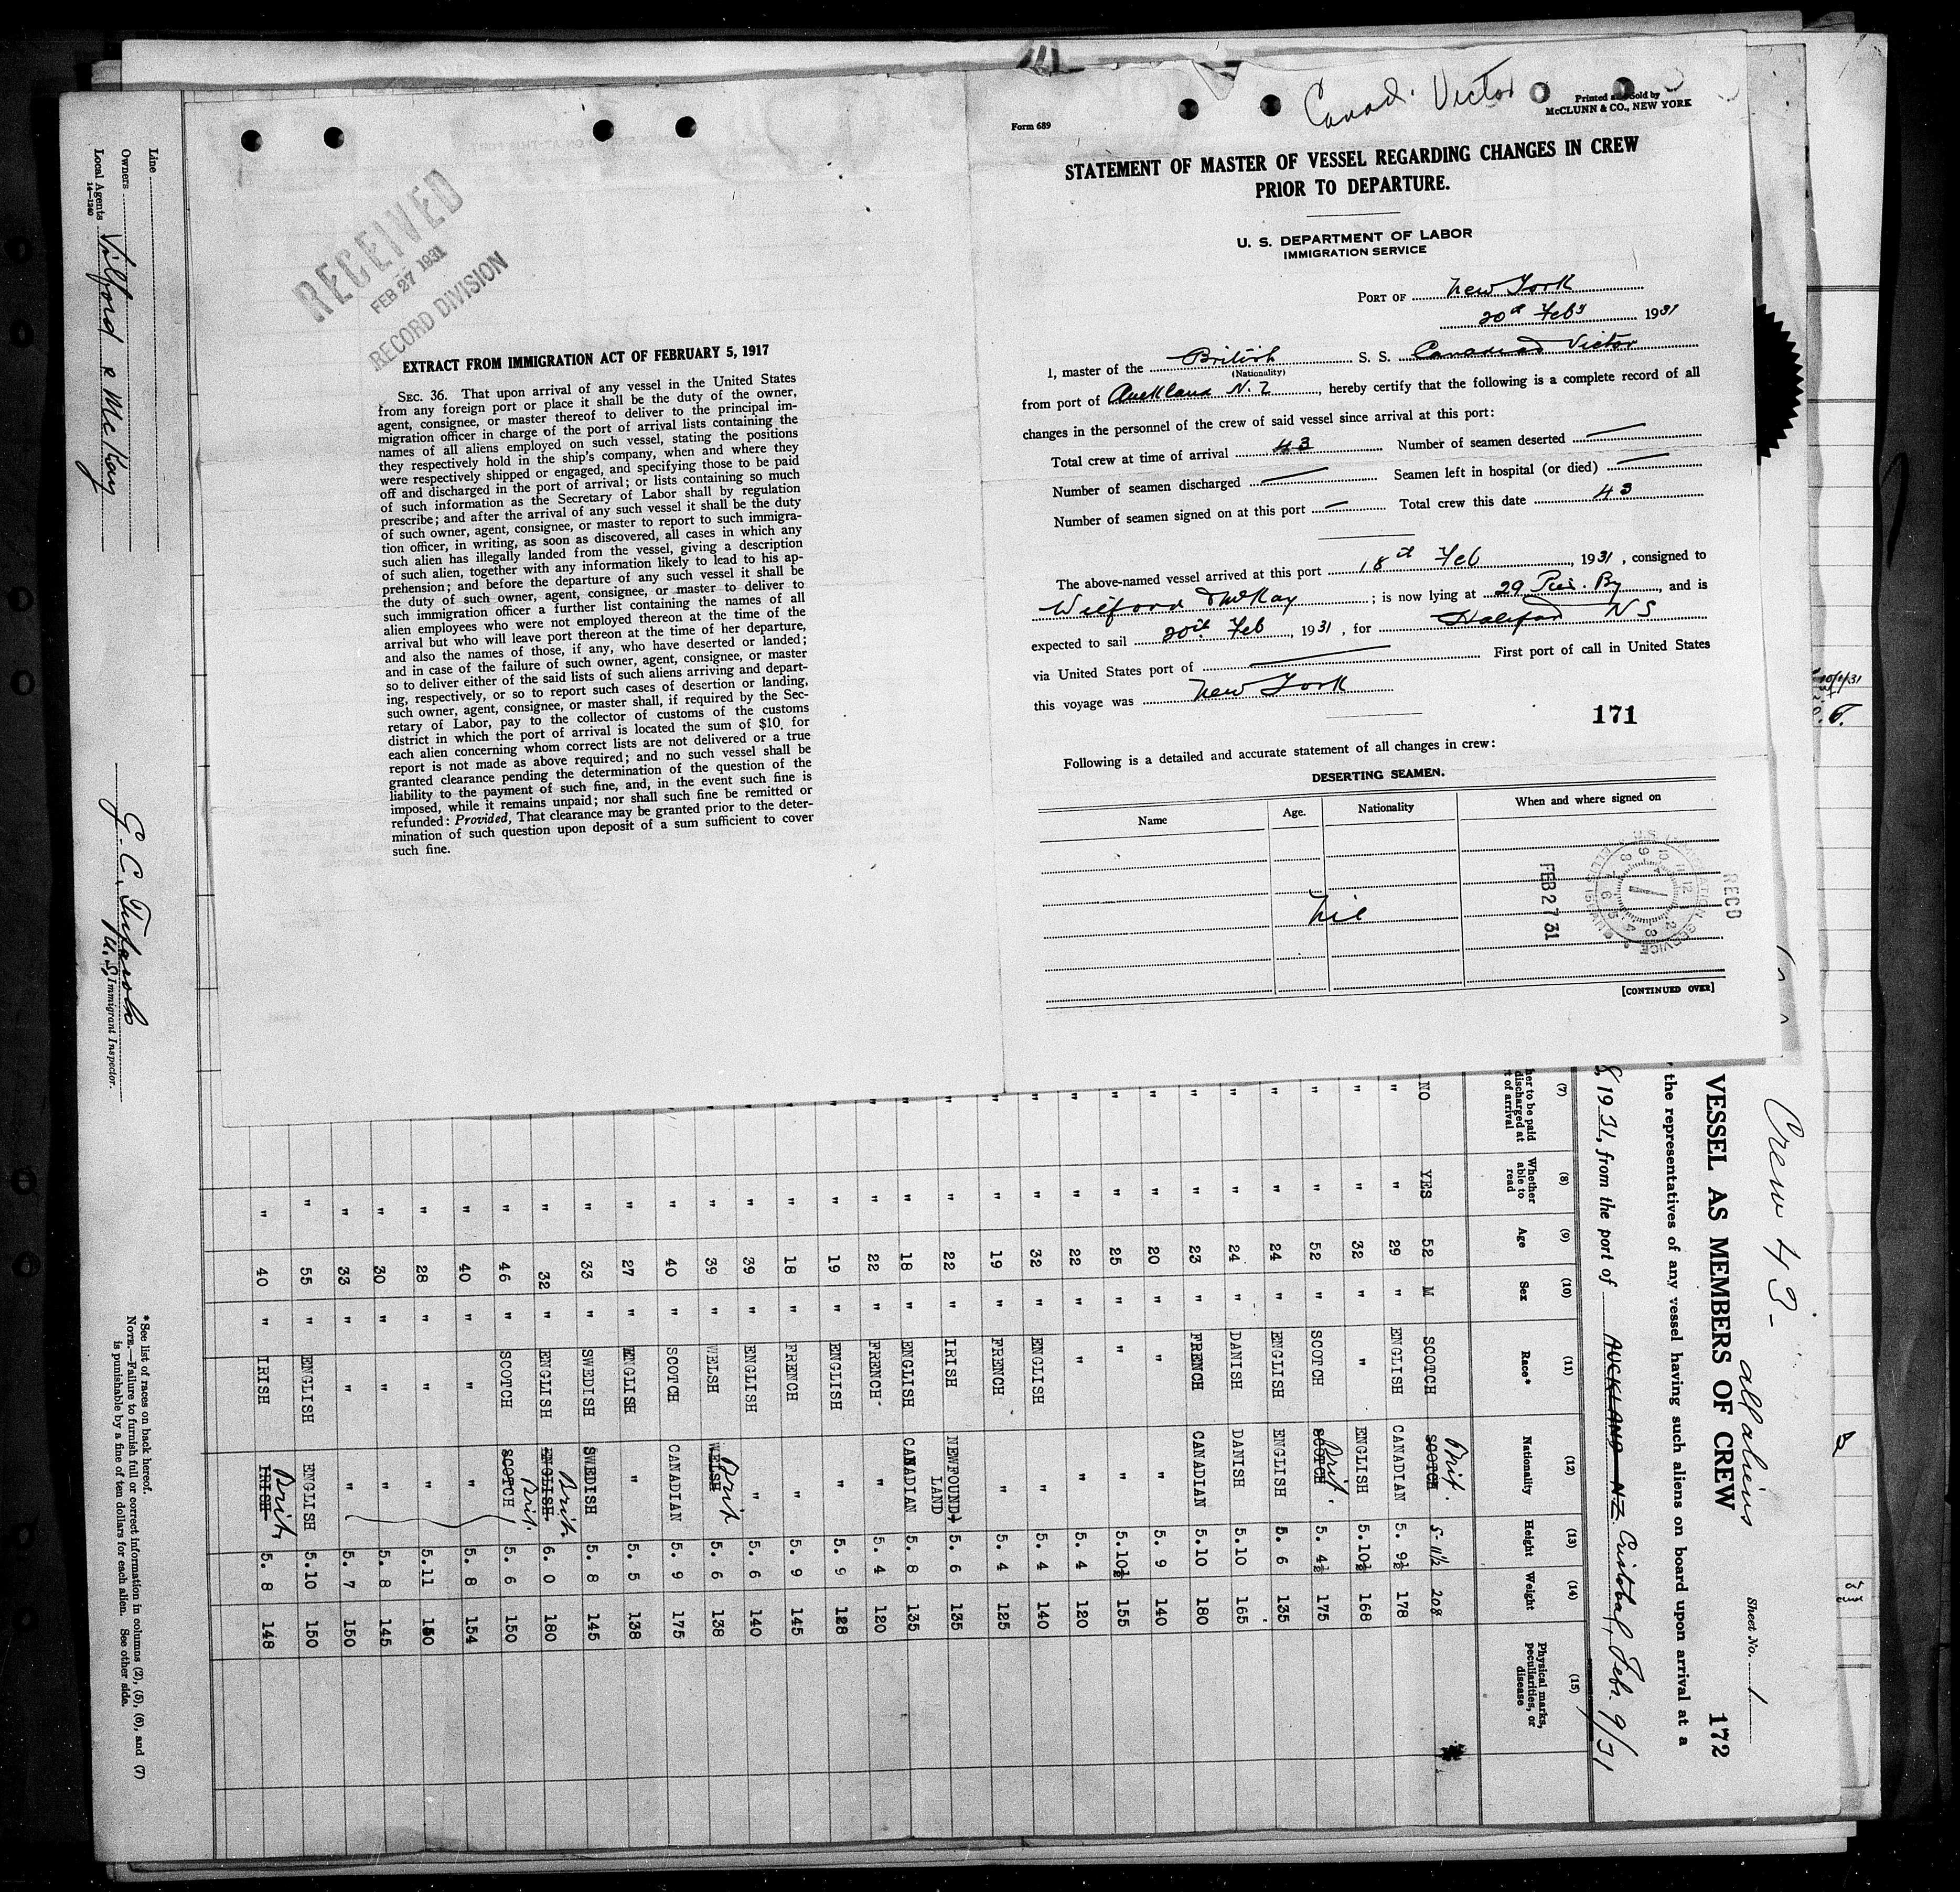 Canad. Victor
Printed and Sold by
McCLUNN & CO., NEW YORK
Form 689
STATEMENT OF MASTER OF VESSEL REGARDING CHANGES IN CREW
PRIOR TO DEPARTURE.
U. S. DEPARTMENT OF LABOR
IMMIGRATION SERVICE
PORT OF New York
20th Feby 1931
I, master of the British S. S. Canadian Victor
(Nationality)
from port of Auckland N.Z, hereby certify that the following is a complete record of all
changes in the personnel of the crew of said vessel since arrival at this port:
Total crew at time of arrival 43 Number of seamen deserted —
Number of seamen discharged — Seamen left in hospital (or died) —
Number of seamen signed on at this port — Total crew this date 43
The above-named vessel arrived at this port 18th Feb, 1931, consigned to
Wilford & McKay; is now lying at 29 Pier. By, and is
expected to sail 20th Feb, 1931, for Halifax NS
via United States port of — First port of call in United States
this voyage was New York
171
Following is a detailed and accurate statement of all changes in crew:
DESERTING SEAMEN.
Name Age. Nationality When and where signed on
Nil
RECD
FEB 27 31
[CONTINUED OVER]
RECEIVED
FEB 27 1931
RECORD DIVISION
EXTRACT FROM IMMIGRATION ACT OF FEBRUARY 5, 1917
SEC. 36. That upon arrival of any vessel in the United States
from any foreign port or place it shall be the duty of the owner,
agent, consignee, or master thereof to deliver to the principal im-
migration officer in charge of the port of arrival lists containing the
names of all aliens employed on such vessel, stating the positions
they respectively hold in the ship's company, when and where they
were respectively shipped or engaged, and specifying those to be paid
off and discharged in the port of arrival; or lists containing so much
of such information as the Secretary of Labor shall by regulation
prescribe; and after the arrival of any such vessel it shall be the duty
of such owner, agent, consignee, or master to report to such immigra-
tion officer, in writing, as soon as discovered, all cases in which any
such alien has illegally landed from the vessel, giving a description
of such alien, together with any information likely to lead to his ap-
prehension; and before the departure of any such vessel it shall be
the duty of such owner, agent, consignee, or master to deliver to
such immigration officer a further list containing the names of all
alien employees who were not employed thereon at the time of the
arrival but who will leave port thereon at the time of her departure,
and also the names of those, if any, who have deserted or landed;
and in case of the failure of such owner, agent, consignee, or master
so to deliver either of the said lists of such aliens arriving and depart-
ing, respectively, or so to report such cases of desertion or landing,
such owner, agent, consignee, or master shall, if required by the Sec-
retary of Labor, pay to the collector of customs of the customs
district in which the port of arrival is located the sum of $10 for
each alien concerning whom correct lists are not delivered or a true
report is not made as above required; and no such vessel shall be
granted clearance pending the determination of the question of the
liability to the payment of such fine, and, in the event such fine is
imposed, while it remains unpaid; nor shall such fine be remitted or
refunded: Provided, That clearance may be granted prior to the deter-
mination of such question upon deposit of a sum sufficient to cover
such fine.
Crew 43 - all aliens Sheet No. 1
VESSEL AS MEMBERS OF CREW 172
the representatives of any vessel having such aliens on board upon arrival at a
8, 1931, from the port of AUCKLAND NZ Cristobal, Febr. 9/31
(7) (8) (9) (10) (11) (12) (13) (14) (15)
her to be paid discharged at t of arrival Whether able to read Age Sex Race* Nationality Height Weight Physical marks, peculiarities, or disease
NO YES 52 M SCOTCH SCOTCH Brit. 5-11½ 208
" " 29 " ENGLISH CANADIAN 5. 9½ 178
" " 32 " " ENGLISH 5.10½ 168
" " 52 " SCOTCH SCOTCH Brit. 5. 4½ 175
" " 24 " ENGLISH ENGLISH 5. 6 135
" " 24 " DANISH DANISH 5.10 165
" " 23 " FRENCH CANADIAN 5.10 180
" " 20 " " " 5. 9 140
" " 25 " " " 5.10½ 155
" " 22 " " " 5. 4 120
" " 32 " ENGLISH " 5. 4 140
" " 19 " FRENCH " 5. 4 125
" " 22 " IRISH NEWFOUND+LAND 5. 6 135
" " 18 " ENGLISH CANADIAN 5. 8 135
" " 22 " FRENCH " 5. 4 120
" " 19 " ENGLISH " 5. 9 128
" " 18 " FRENCH " 5. 9 145
" " 39 " ENGLISH " 5. 6 140
" " 39 " WELSH WELSH Brit 5. 6 138
" " 40 " SCOTCH CANADIAN 5. 9 175
" " 27 " ENGLISH " 5. 5 138
" " 33 " SWEDISH SWEDISH 5. 8 145
" " 32 " ENGLISH ENGLISH Brit. 6. 0 180
" " 46 " SCOTCH SCOTCH Brit. 5. 6 150
" " 40 " " " 5. 8 154
" " 28 " " " 5.11 150
" " 30 " " " 5. 8 145
" " 33 " " " 5. 7 150
" " 55 " ENGLISH ENGLISH 5.10 150
" " 40 " IRISH IRISH Brit. 5. 8 148
Line
Owners
Local Agents Wilford & McKay
14—1240
U.S. Immigrant Inspector.
* See list of races on back hereof.
NOTE.—Failure to furnish full or correct information in columns (2), (5), (6), and (7)
is punishable by a fine of ten dollars for each alien. See other side.